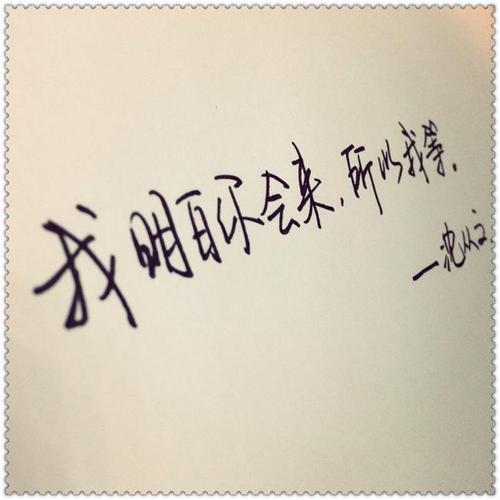 我明白你会来，所以我等。
—沈从文